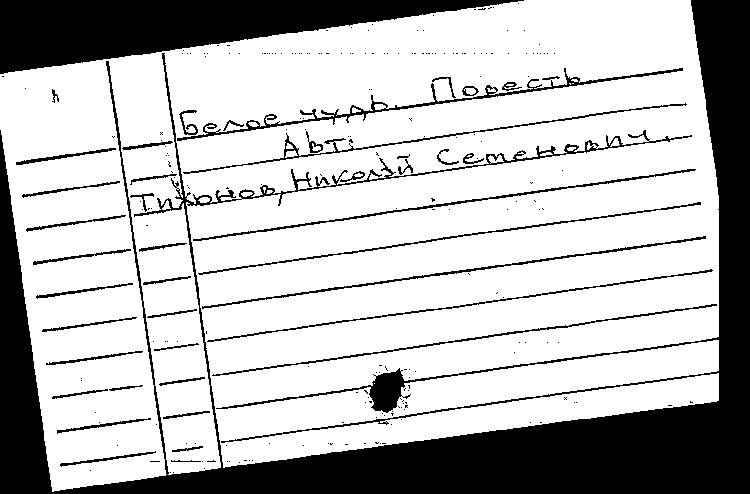 Белое чудь. Повесть
Авт:
Тихонов, Николай Семенович.